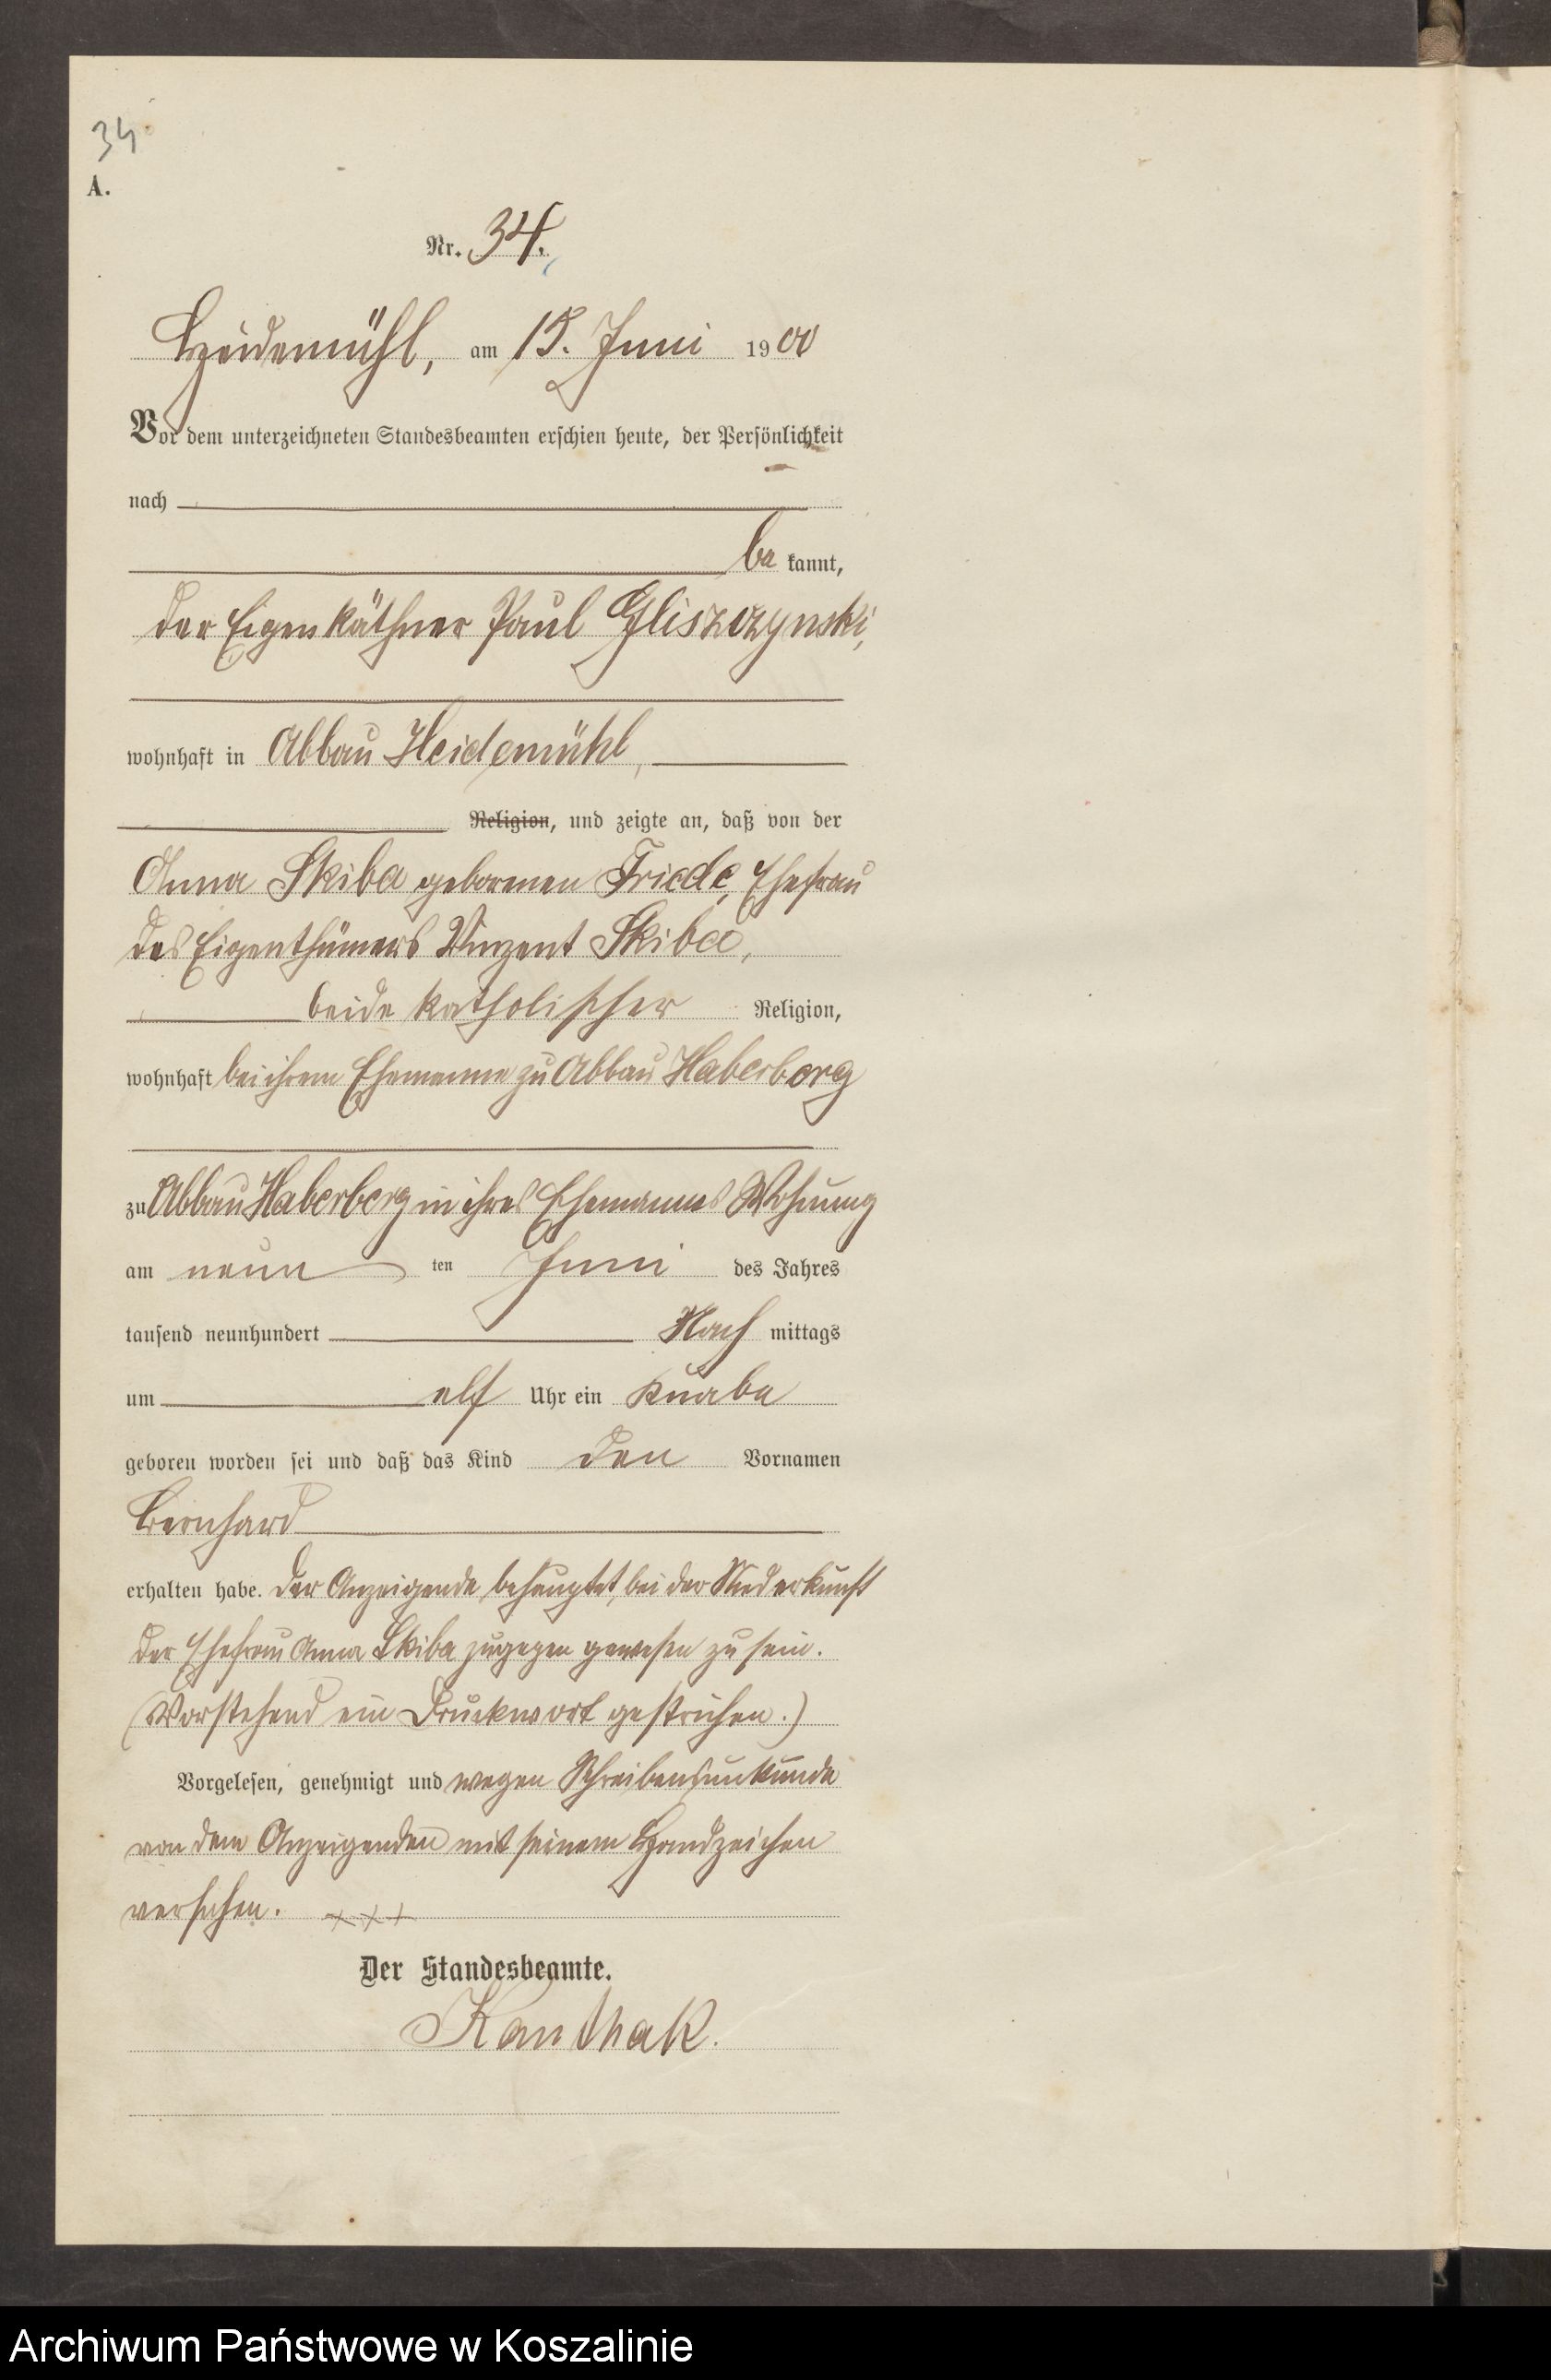 34
A.
Nr. 34.
Heidemühl, am 15. Juni 1900
Vor dem unterzeichneten Standesbeamten erschien heute, der Persönlichkeit
nach
be kannt,
der Eigenkäthner Paul Gliszczynski,
wohnhaft in Abbau Heidemühl,
Religion, und zeigte an, daß von der
Anna Skiba geborenen Friede, Ehefrau
des Eigenthümers Vinzent Skiba,
beide katholischer Religion,
wohnhaft bei ihrem Ehemanne zu Abbau Haberberg
zu Abbau Haberberg in ihres Ehemannes Wohnung
am neun ten Juni des Jahres
tausend neunhundert Nach mittags
um elf Uhr ein Knabe
geboren worden sei und daß das Kind den Vornamen
Bernhard
erhalten habe. Der Anzeigende behauptet, bei der Niederkunft
der Ehefrau Anna Skiba zugegen gewesen zu sein.
(Vorstehend ein Druckwort gestrichen.)
Vorgelesen, genehmigt und wegen Schreibensunkunde
von dem Anzeigenden mit seinem Handzeichen
versehen. +++
Der Standesbeamte.
Kanthak.
Archiwum Państwowe w Koszalinie